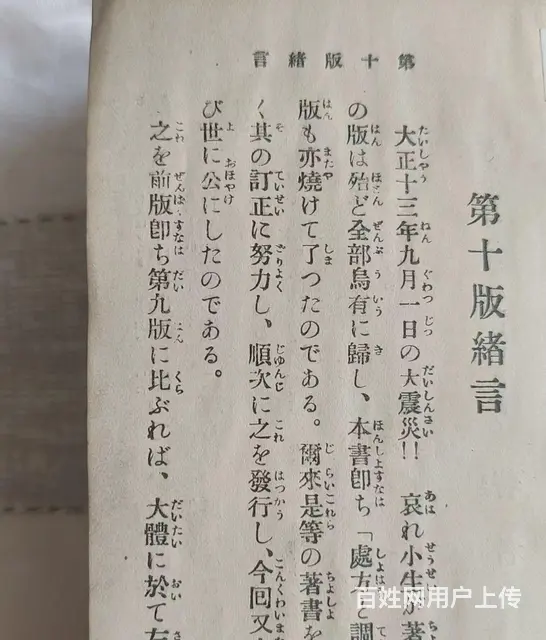 第十版緒言
第十版緒言
大正十三年九月一日の大震災!! 哀れ小生が著
の版は殆ど全部烏有に歸し、本書卽ち「處方と調
版も亦燒けて了つたのである。爾來是等の著書を
く其の訂正に努力し、順次に之を發行し、今回又
び世に公にしたのである。
之を前版卽ち第九版に比ぶれば、大體に於て左
百姓网用户上传